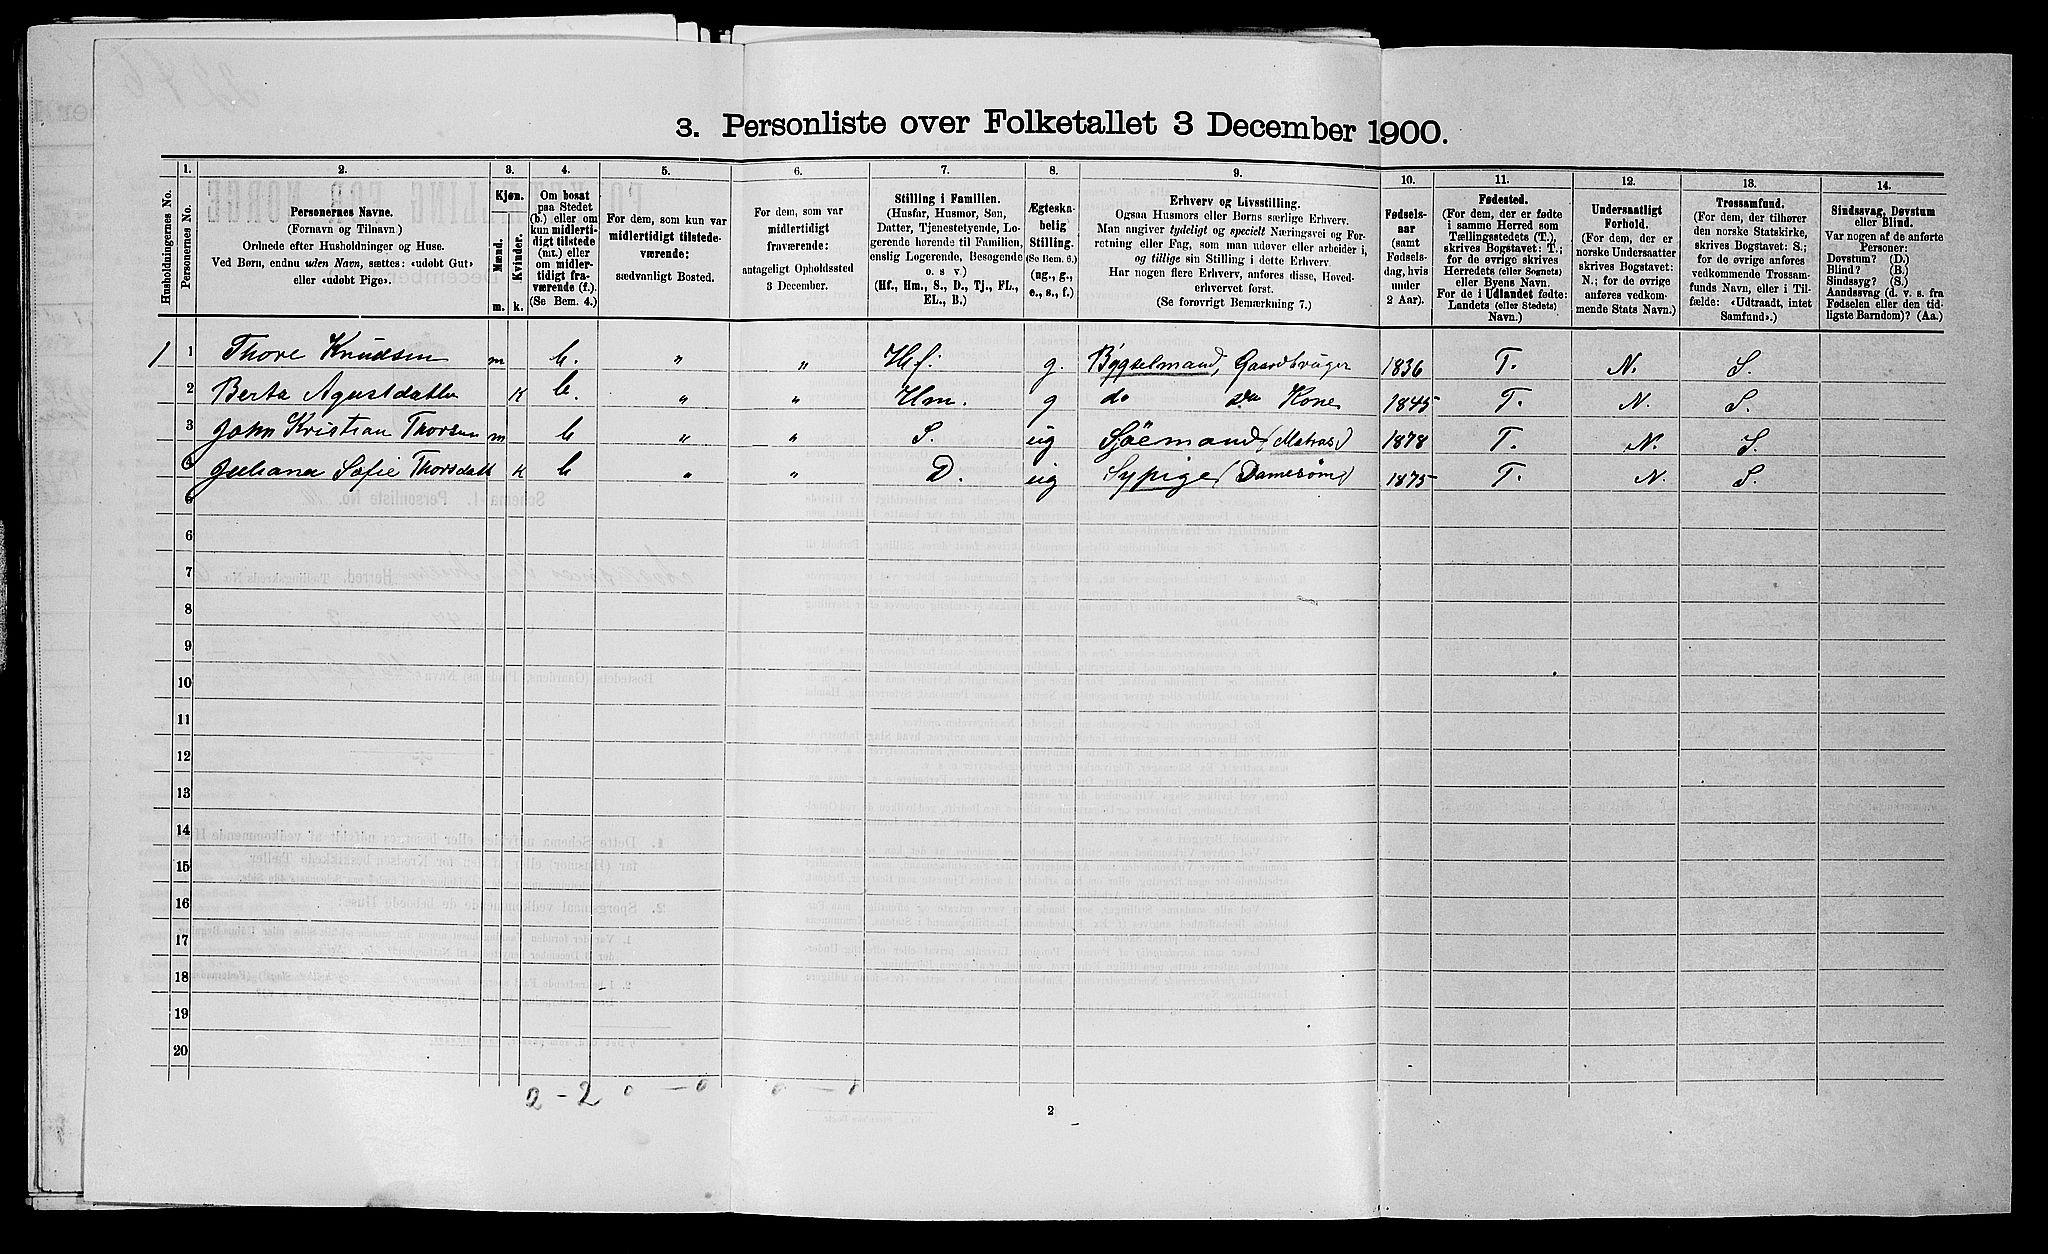 3. Personliste over Folketallet 3 December 1900.
1. 2. 3. 4. 5. 6. 7. 8. 9. 10. 11. 12. 13. 14.
Husholdningernes No.
Personernes No.
Personernes Navne.
(Fornavn og Tilnavn)
Ordnede efter Husholdninger og Huse.
Ved Børn, endnu uden Navn, sættes: «udøbt Gut»
eller «udøbt Pige».
Kjøn.
Mænd.
Kvinder.
m. k.
Om bosat
paa Stedet
(b.) eller om
kun midlerti-
digt tilstede
(mt.) eller
om midler-
tidigt fra-
værende (f.).
(Se Bem. 4.)
For dem, som kun var
midlertidigt tilstede-
værende:
sædvanligt Bosted.
For dem, som var
midlertidigt
fraværende:
antageligt Opholdssted
3 December.
Stilling i Familien.
(Husfar, Husmor, Søn,
Datter, Tjenestetyende, Lo-
gerende hørende til Familien,
enslig Logerende, Besøgende
o. s v)
(Hf., Hm., S., D., Tj., FL.,
EL., B.)
Ægteska-
belig
Stilling.
(Se Bem. 6.)
(ug., g.,
e., s., f.)
Erhverv og Livsstilling.
Ogsaa Husmors eller Børns særlige Erhverv.
Man angiver tydeligt og specielt Næringsvei og For-
retning eller Fag, som man udøver eller arbeider i,
og tillige sin Stilling i dette Erhverv.
Har nogen flere Erhverv, anføres disse, Hoved-
erhvervet først.
(Se forøvrigt Bemærkning 7.)
Fødsels-
aar
(samt
Fødsels-
dag, hvis
under
2 Aar).
Fødested.
(For dem, der er fødte
i samme Herred som
Tællingsstedets (T.),
skrives Bogstavet: T.;
for de øvrige skrives
Herredets (eller Sognets)
eller Byens Navn.
For de i Udlandet fødte:
Landets (eller Stedets)
Navn.)
Undersaatligt
Forhold.
(For dem, der er
norske Undersaatter
skrives Bogstavet:
N.; for de øvrige
anføres vedkom-
mende Stats Navn.)
Trossamfund.
(For dem, der tilhører
den norske Statskirke,
skrives Bogstavet: S.;
for de øvrige anføres
vedkommende Trossam-
funds Navn, eller i Til-
fælde: «Udtraadt, intet
Samfund».)
Sindssvag, Døvstum
eller Blind.
Var nogen af de anførte
Personer:
Døvstum? (D.)
Blind? (B.)
Sindssyg? (S.)
Aandssvag (d. v. s. fra
Fødselen eller den tid-
ligste Barndom)? (Aa.)
1 1 Thore Knudsen m b. " " Hf. g. Bygselmand, Gaardbruger 1836 T. N. S.
2 Berta Agustdatter k b. " " Hm. g do Kone 1845 T. N. S.
3 John Kristian Thorsen m b " " S. ug Sjöemand (Matros) 1878 T. N. S.
4 Juliana Sofie Thorsdatt k b " " D. ug Sypige (Damesøm) 1875 T. N. S.
5
6
7
8
9
10
11
12
13
14
15
16
17
18
19
20
2 - 2 0 - 0 0 - 0
2